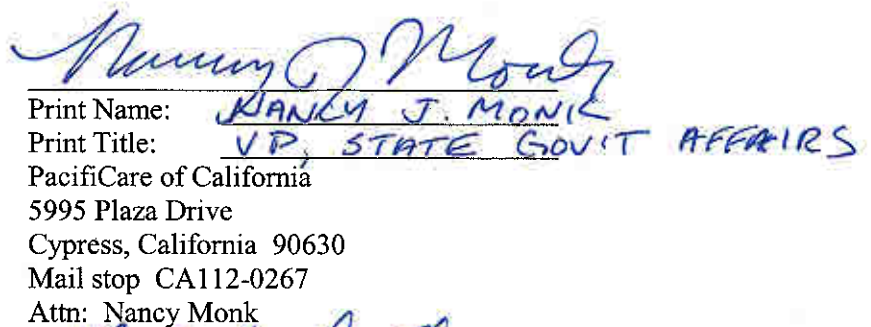 Nancy J Monk
Print Name: NANCY J. MONK
Print Title: VP, STATE GOV'T AFFAIRS
PacifiCare of California
5995 Plaza Drive
Cypress, California 90630
Mail stop CA112-0267
Attn: Nancy Monk